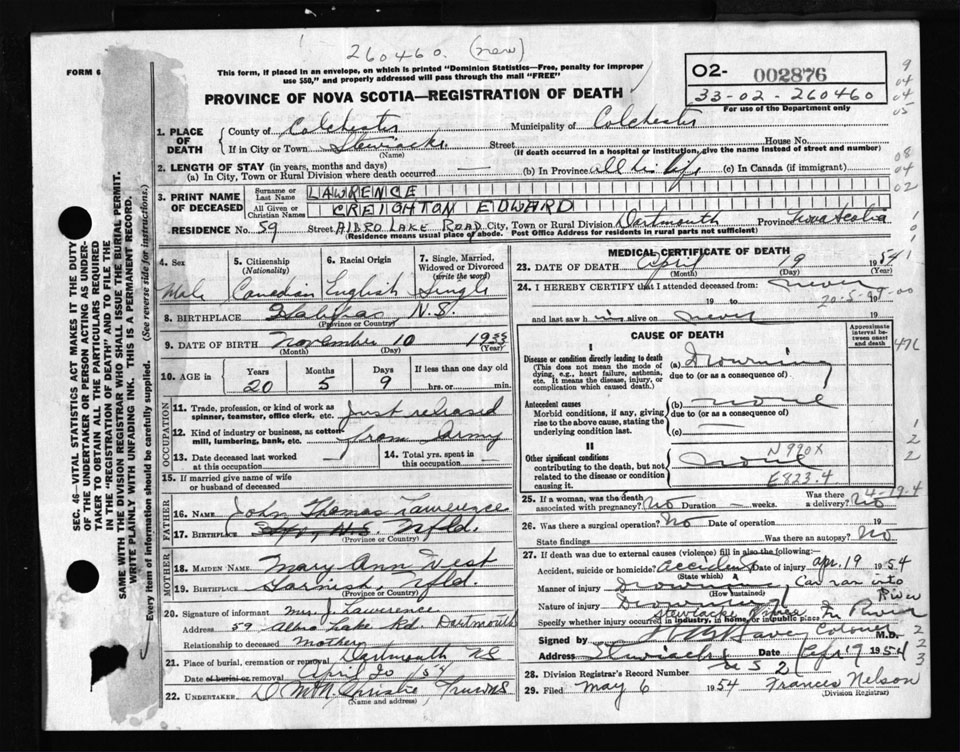 260460 (new)
FORM 6
This form, if placed in an envelope, on which is printed "Dominion Statistics—Free, penalty for improper
use $50," and properly addressed will pass through the mail "FREE"
O2- 002876
33-02-260460
For use of the Department only
PROVINCE OF NOVA SCOTIA—REGISTRATION OF DEATH
1. PLACE OF DEATH
County of Colchester Municipality of Colchester
If in City or Town Stewiacke Street House No.
(Name) (If death occurred in a hospital or institution, give the name instead of street and number)
2. LENGTH OF STAY (in years, months and days)
(a) In City, Town or Rural Division where death occurred — (b) In Province all his life (c) In Canada (if immigrant)
3. PRINT NAME OF DECEASED
Surname or Last Name LAWRENCE
All Given or Christian Names CREIGHTON EDWARD
RESIDENCE No. 59 Street ALBRO LAKE ROAD City, Town or Rural Division Dartmouth Province Nova Scotia
(Residence means usual place of abode. Post Office Address for residents in rural parts not sufficient)
4. Sex Male
5. Citizenship (Nationality) Canadian
6. Racial Origin English
7. Single, Married, Widowed or Divorced (write the word) Single
8. BIRTHPLACE Halifax, N.S.
(Province or Country)
9. DATE OF BIRTH November 10 1933
(Month) (Day) (Year)
10. AGE in Years 20 Months 5 Days 9 If less than one day hrs. or min.
OCCUPATION
11. Trade, profession, or kind of work as spinner, teamster, office clerk, etc. Just released
12. Kind of industry or business, as cotton mill, lumbering, bank, etc. from Army
13. Date deceased last worked at this occupation
14. Total yrs. spent in this occupation —
15. If married give name of wife or husband of deceased
FATHER
16. Name John Thomas Lawrence
17. Birthplace Nfld.
(Province or Country)
MOTHER
18. MAIDEN NAME Mary Ann West
19. BIRTHPLACE Garnish Nfld.
(Province or Country)
20. Signature of informant Mrs. J. Lawrence
Address 59 Albro Lake Rd. Dartmouth
Relationship to deceased Mother
21. Place of burial, cremation or removal Dartmouth NS
Date of burial or removal April 20 54
22. UNDERTAKER Christie Truro NS
(Name and address)
MEDICAL CERTIFICATE OF DEATH
23. DATE OF DEATH April 19 1954
(Month) (Day) (Year)
24. I HEREBY CERTIFY that I attended deceased from: never
19 to 19
and last saw him alive on never
CAUSE OF DEATH
Approximate interval between onset and death
I
Disease or condition directly leading to death (a) Drowning
(This does not mean the mode of dying, e.g., heart failure, asthenia, etc. It means the disease, injury, or complication which caused death.) due to (or as a consequence of)
Antecedent causes (b) none
Morbid conditions, if any, giving rise to the above cause, stating the underlying condition last. due to (or as a consequence of)
(c) —
II
Other significant conditions contributing to the death, but not related to the disease or condition causing it. none
N990X
E823.4
25. If a woman, was the death associated with pregnancy? No Duration — weeks. Was there a delivery? No
26. Was there a surgical operation? No Date of operation 19
State findings Was there an autopsy? No
27. If death was due to external causes (violence) fill in also the following:—
Accident, suicide or homicide? Accident Date of injury Apr. 19 1954
(State which)
Manner of injury Drowning Car ran into River
(How sustained)
Nature of injury Drowning
Stewiacke River In River
Specify whether injury occurred in industry, in home, or in public place
Signed by Coroner M.D.
Address Stewiacke NS Date Apr 19 1954
28. Division Registrar's Record Number 2
29. Filed May 6 1954 Frances Nelson
(Division Registrar)
SEC. 46—VITAL STATISTICS ACT MAKES IT THE DUTY
OF THE UNDERTAKER OR PERSON ACTING AS UNDER-
TAKER TO OBTAIN ALL THE PARTICULARS REQUIRED
IN THE "REGISTRATION OF DEATH" AND TO FILE THE
SAME WITH THE DIVISION REGISTRAR WHO SHALL ISSUE THE BURIAL PERMIT.
WRITE PLAINLY WITH UNFADING INK. THIS IS A PERMANENT RECORD.
Every item of information should be carefully supplied. (See reverse side for instructions.)